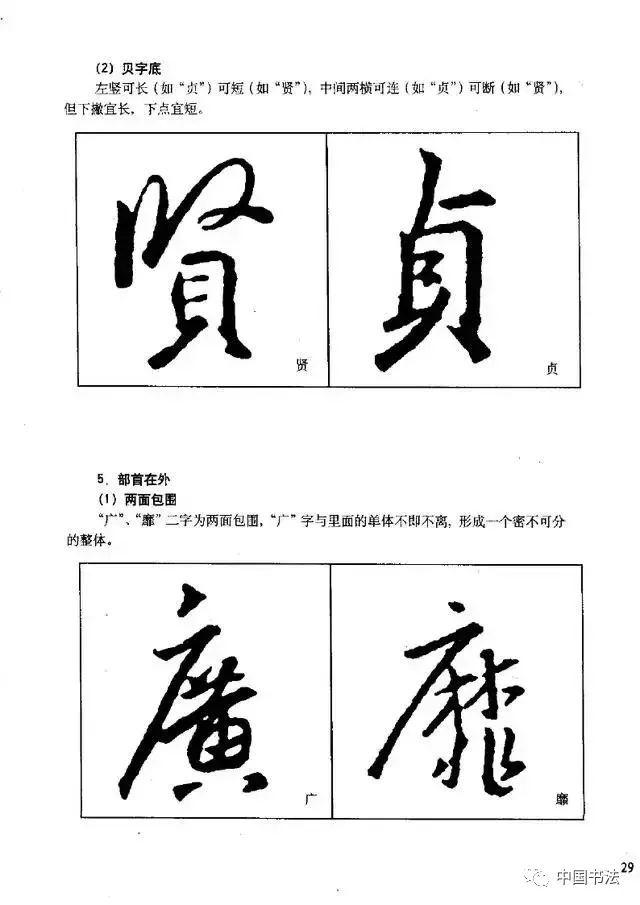 (2) 贝字底
左竖可长(如“贞”)可短(如“贤”),中间两横可连(如“贞”)可断(如“贤”),
但下撇宜长,下点宜短。
賢 貞
贤 贞
5. 部首在外
(1) 两面包围
“广”、“靡”二字为两面包围,“广”字与里面的单体不即不离,形成一个密不可分
的整体。
廣 靡
广 靡
29
中国书法